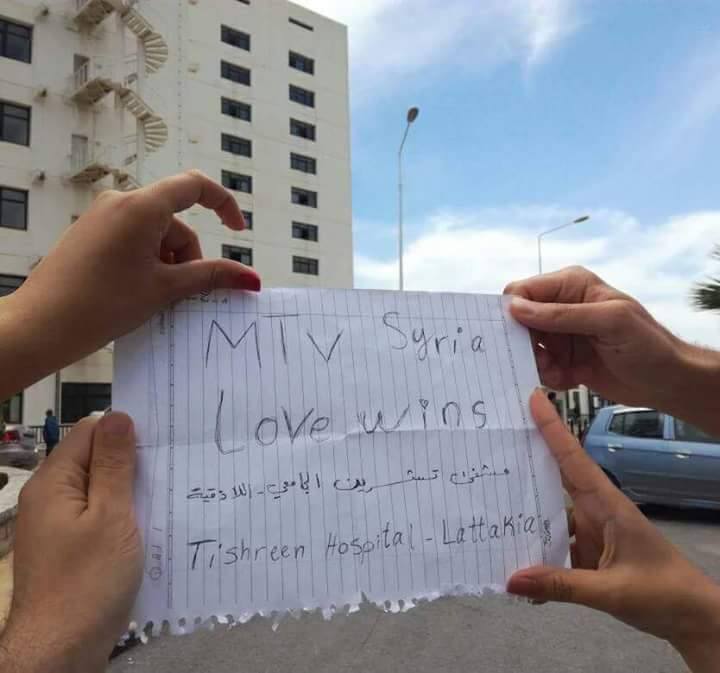 MTV Syria
Love wins
مشفى تشرين الجامعي - اللاذقية
Tishreen Hospital - Lattakia